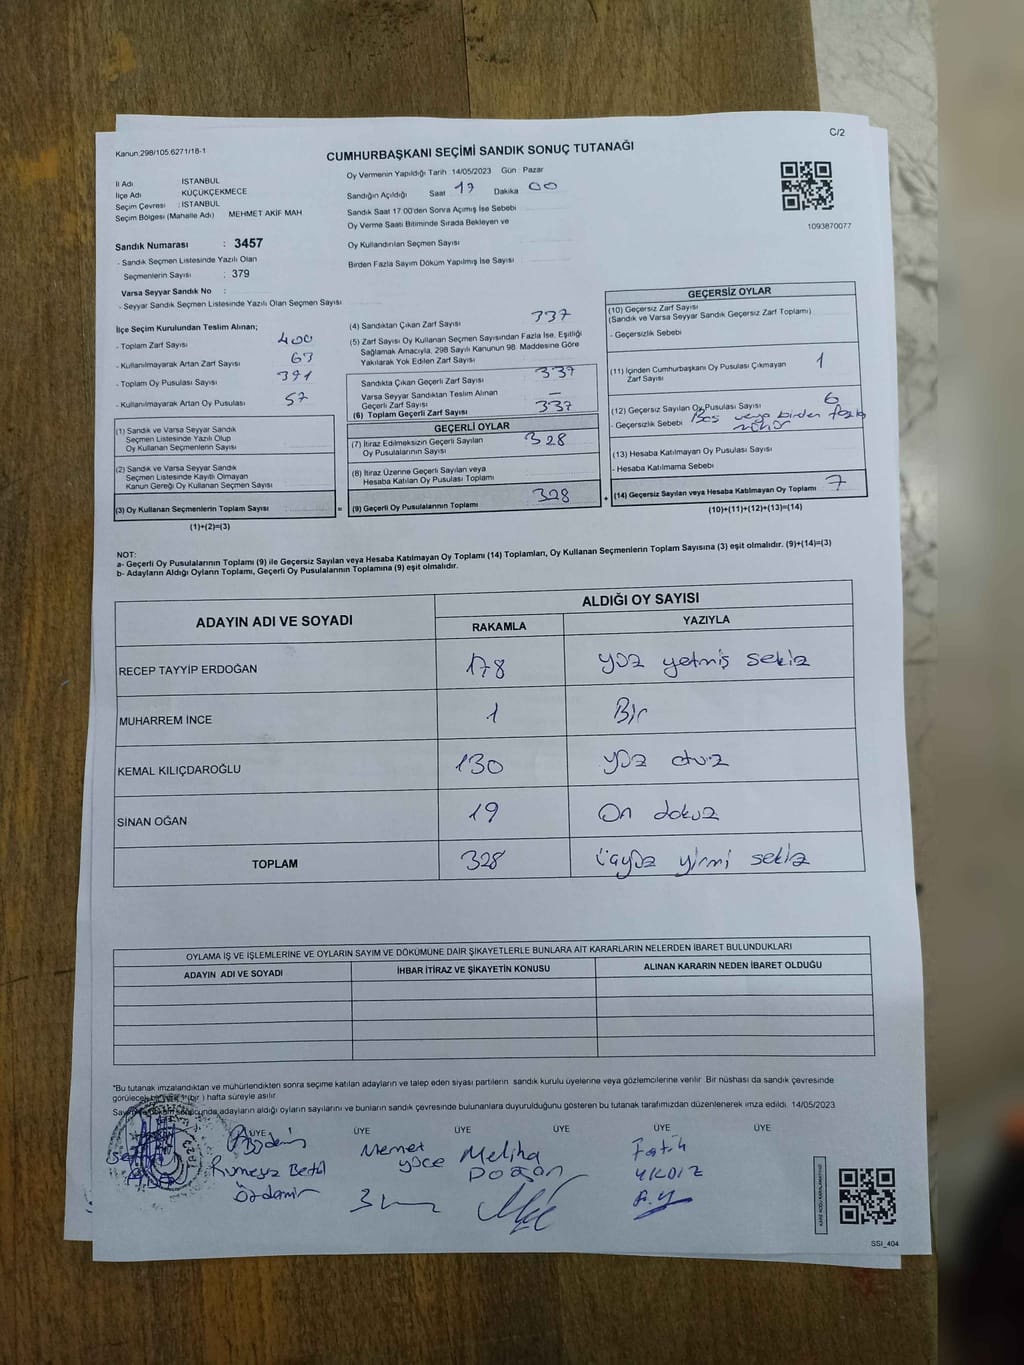 C/2
Kanun,298/105.6271/18-1
CUMHURBAŞKANI SEÇİMİ SANDIK SONUÇ TUTANAĞI
İl Adı İSTANBUL
İlçe Adı KÜÇÜKÇEKMECE
Seçim Çevresi : İSTANBUL
Seçim Bölgesi (Mahalle Adı) MEHMET AKİF MAH
Sandık Numarası : 3457
- Sandık Seçmen Listesinde Yazılı Olan
Seçmenlerin Sayısı : 379
Varsa Seyyar Sandık No :
- Seyyar Sandık Seçmen Listesinde Yazılı Olan Seçmen Sayısı
Oy Vermenin Yapıldığı Tarih 14/05/2023 Gün Pazar
Sandığın Açıldığı Saat 17 Dakika 00
Sandık Saat 17 00'den Sonra Açımış İse Sebebi
Oy Verme Saati Bitiminde Sırada Bekleyen ve
Oy Kullandırılan Seçmen Sayısı
Birden Fazla Sayım Döküm Yapılmış İse Sayısı
1093870077
İlçe Seçim Kurulundan Teslim Alınan;
- Toplam Zarf Sayısı 400
- Kullanılmayarak Artan Zarf Sayısı 63
- Toplam Oy Pusulası Sayısı 391
- Kullanılmayarak Artan Oy Pusulası 57
(1) Sandık ve Varsa Seyyar Sandık
Seçmen Listesinde Yazılı Olup
Oy Kullanan Seçmenlerin Sayısı
(2) Sandık ve Varsa Seyyar Sandık
Seçmen Listesinde Kayıtlı Olmayan
Kanun Gereği Oy Kullanan Seçmen Sayısı
(3) Oy Kullanan Seçmenlerin Toplam Sayısı
=
(1)+(2)=(3)
(4) Sandıktan Çıkan Zarf Sayısı 337
(5) Zarf Sayısı Oy Kullanan Seçmen Sayısından Fazla İse, Eşitliği
Sağlamak Amacıyla, 298 Sayılı Kanunun 98. Maddesine Göre
Yakılarak Yok Edilen Zarf Sayısı
Sandıkta Çıkan Geçerli Zarf Sayısı 337
Varsa Seyyar Sandıktan Teslim Alınan
Geçerli Zarf Sayısı —
(6) Toplam Geçerli Zarf Sayısı 337
GEÇERLİ OYLAR
(7) İtiraz Edilmeksizin Geçerli Sayılan
Oy Pusulalarının Sayısı 328
(8) İtiraz Üzerine Geçerli Sayılan veya
Hesaba Katılan Oy Pusulası Toplamı
(9) Geçerli Oy Pusulalarının Toplamı 328
+
GEÇERSİZ OYLAR
(10) Geçersiz Zarf Sayısı
(Sandık ve Varsa Seyyar Sandık Geçersiz Zarf Toplamı)
- Geçersizlik Sebebi
(11) İçinden Cumhurbaşkanı Oy Pusulası Çıkmayan
Zarf Sayısı 1
(12) Geçersiz Sayılan Oy Pusulası Sayısı 6
- Geçersizlik Sebebi Boş veya birden fazla
mühür
(13) Hesaba Katılmayan Oy Pusulası Sayısı
- Hesaba Katılmama Sebebi
(14) Geçersiz Sayılan veya Hesaba Katılmayan Oy Toplamı 7
(10)+(11)+(12)+(13)=(14)
NOT:
a- Geçerli Oy Pusulalarının Toplamı (9) ile Geçersiz Sayılan veya Hesaba Katılmayan Oy Toplamı (14) Toplamları, Oy Kullanan Seçmenlerin Toplam Sayısına (3) eşit olmalıdır. (9)+(14)=(3)
b- Adayların Aldığı Oyların Toplamı, Geçerli Oy Pusulalarının Toplamına (9) eşit olmalıdır.
ADAYIN ADI VE SOYADI
ALDIĞI OY SAYISI
RAKAMLA YAZIYLA
RECEP TAYYİP ERDOĞAN 178 yüz yetmiş sekiz
MUHARREM İNCE 1 Bir
KEMAL KILIÇDAROĞLU 130 yüz otuz
SİNAN OĞAN 19 On dokuz
TOPLAM 328 üçyüz yirmi sekiz
OYLAMA İŞ VE İŞLEMLERİNE VE OYLARIN SAYIM VE DÖKÜMÜNE DAİR ŞİKAYETLERLE BUNLARA AİT KARARLARIN NELERDEN İBARET BULUNDUKLARI
ADAYIN ADI VE SOYADI İHBAR İTİRAZ VE ŞİKAYETİN KONUSU ALINAN KARARIN NEDEN İBARET OLDUĞU
*Bu tutanak imzalandıktan ve mühürlendikten sonra seçime katılan adayların ve talep eden siyasi partilerin sandık kurulu üyelerine veya gözlemcilerine verilir Bir nüshası da sandık çevresinde
görülecek bir yere 1 (bir ) hafta süreyle asılır.
adayların aldığı oyların sayılarını ve bunların sandık çevresinde bulunanlara duyurulduğunu gösteren bu tutanak tarafımızdan düzenlenerek imza edildi. 14/05/2023
ÜYE ÜYE ÜYE ÜYE ÜYE ÜYE
Rumeysa Betül
Özdemir
Memet
yüce
Meliha
Doğan
Fatih
YILDIZ
F.Y
SSI_404